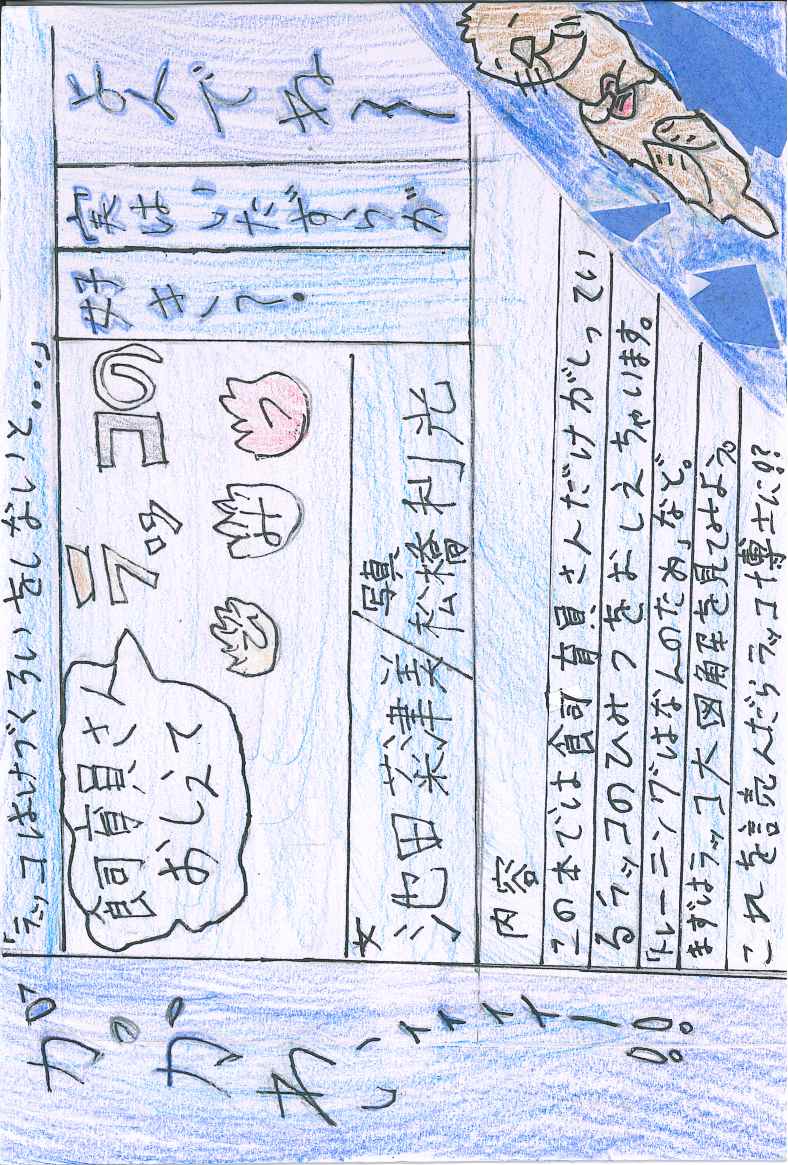 「ラッコはけづくろいをしないと…」
飼育員さん
おしえて
ラッコの
文 池田菜津美／写真 松橋利光
よんでネ〜
実はいたずらが
好き〜。
内容
この本では飼育員さんだけがしってい
るラッコのひみつをおしえちゃいます。
「トレーニングはなんのため」など。
まずはラッコ大図解を見てみよう
これを読んだらラッコ博士に!?
かっかわいイイイイー!!